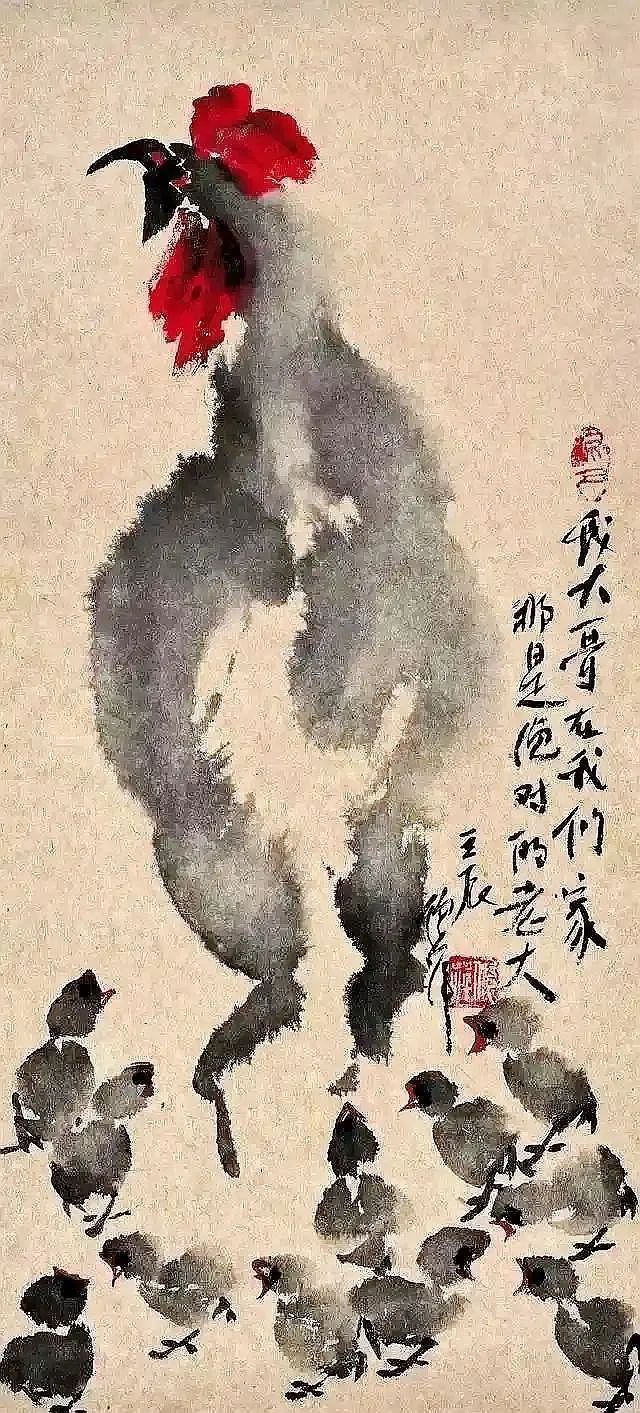 我大哥在我们家
那是绝对的老大
壬辰